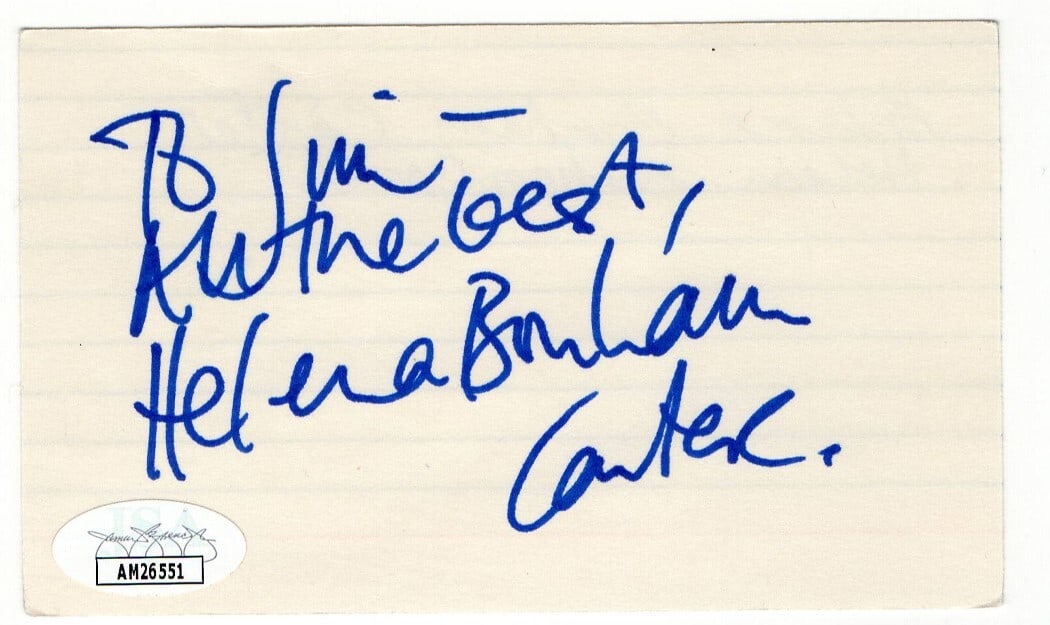 To Jim –
All the best,
Helena Bonham
Carter.
JSA
AM26551